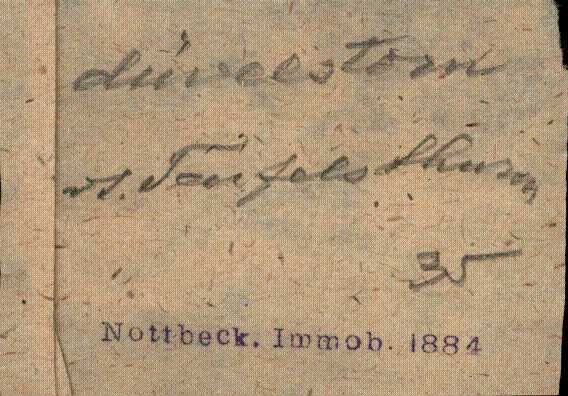 düvelstorn
vs. Teufelsthurm
35
Nottbeck. Immob. 1884